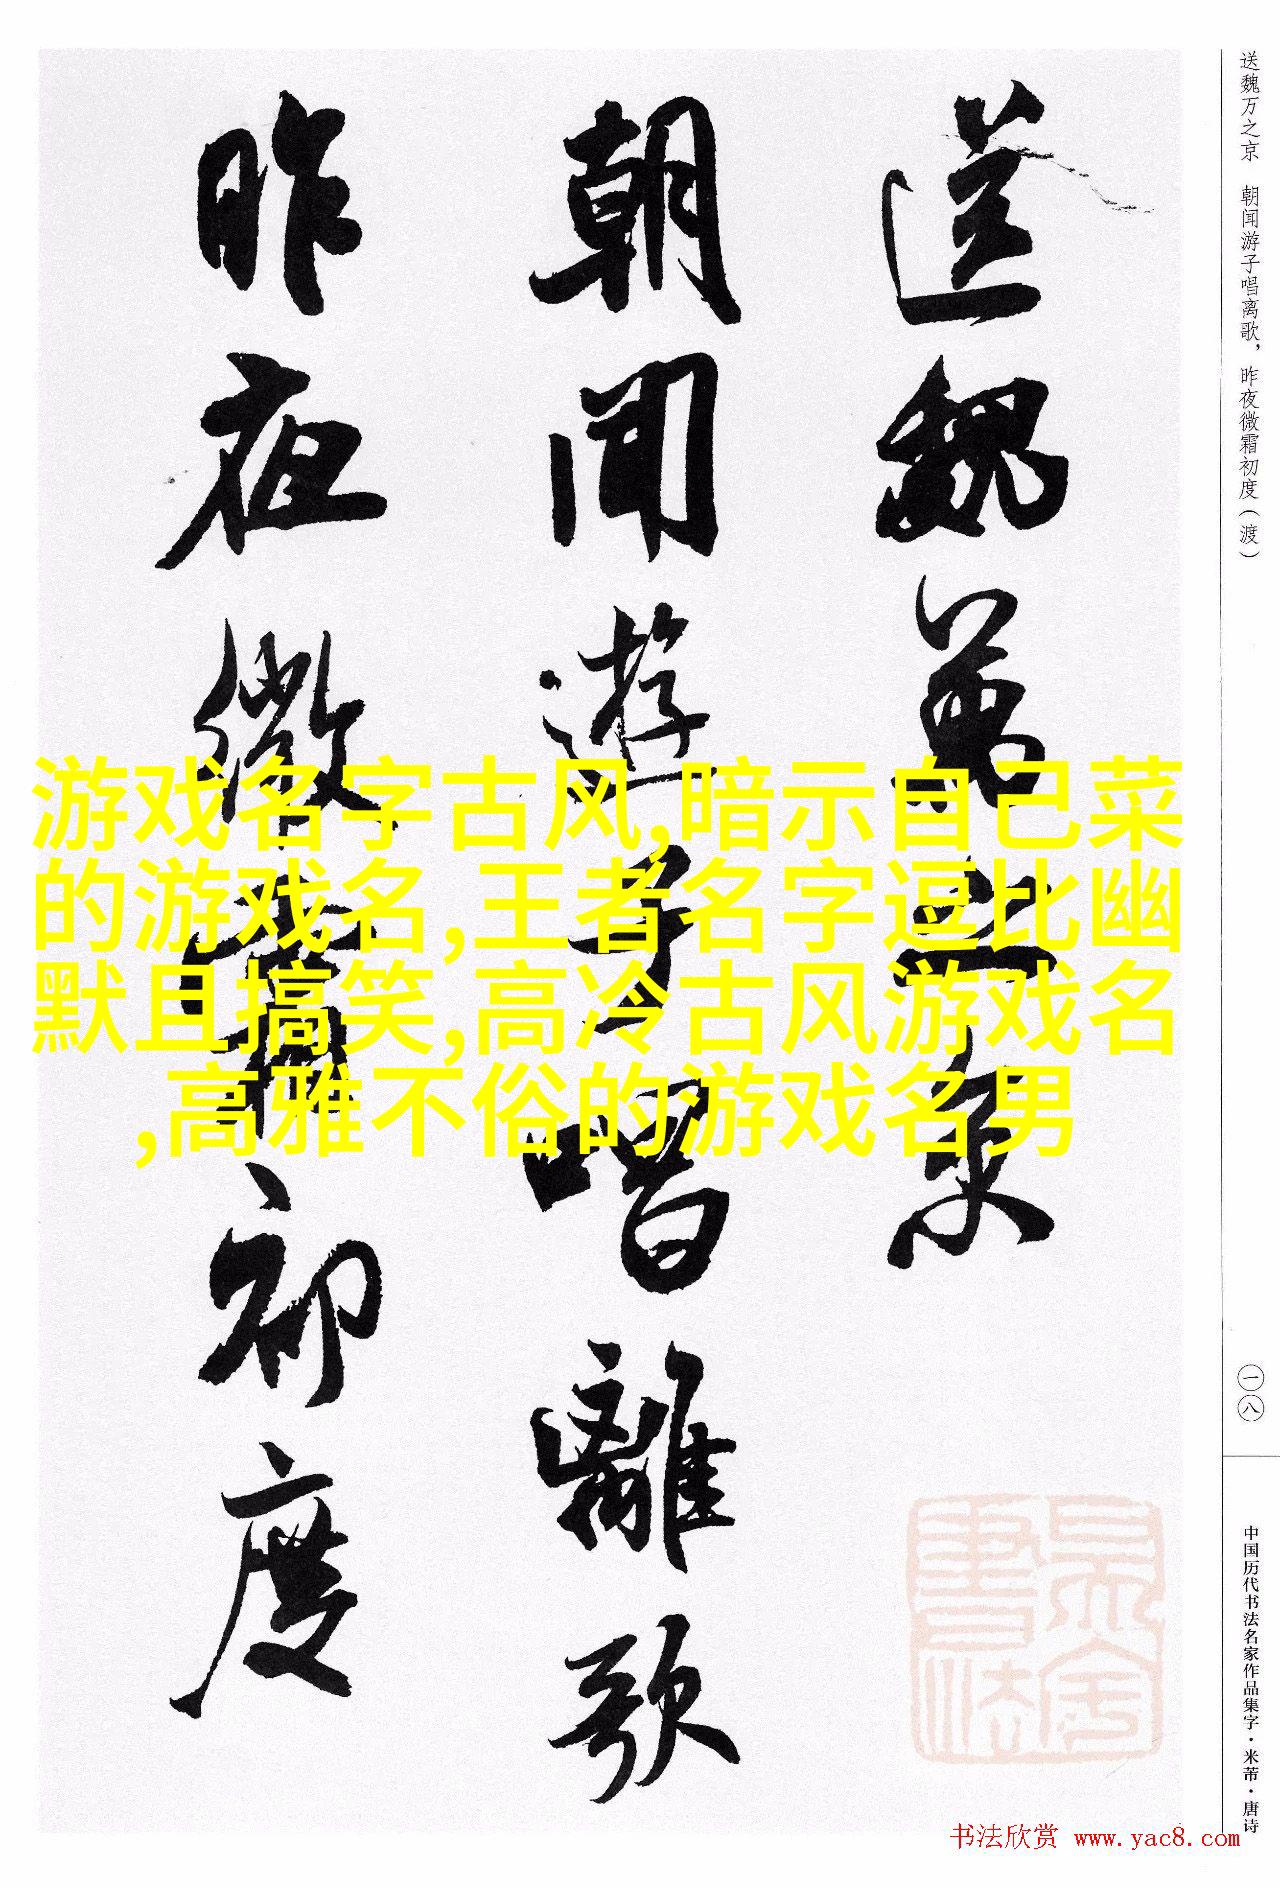 送魏万之京
朝闻遊子唱離歌
昨夜微霜初度
游戏名字古风,暗示自己菜
的游戏名,王者名字逗比幽
默且搞笑,高冷古风游戏名
,高雅不俗的游戏名男
送魏万之京 朝闻游子唱离歌，昨夜微霜初度（渡）
一八
中国历代书法名家作品集字·米芾·唐诗
书法欣赏 www.yac8.com